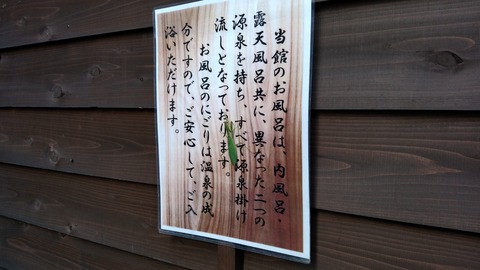 当館のお風呂は、内風呂・
露天風呂共に、異なった二つの
源泉を持ち、すべて源泉掛け
流しとなっております。
お風呂のにごりは温泉の成
分ですので、ご安心して、ご入
浴いただけます。